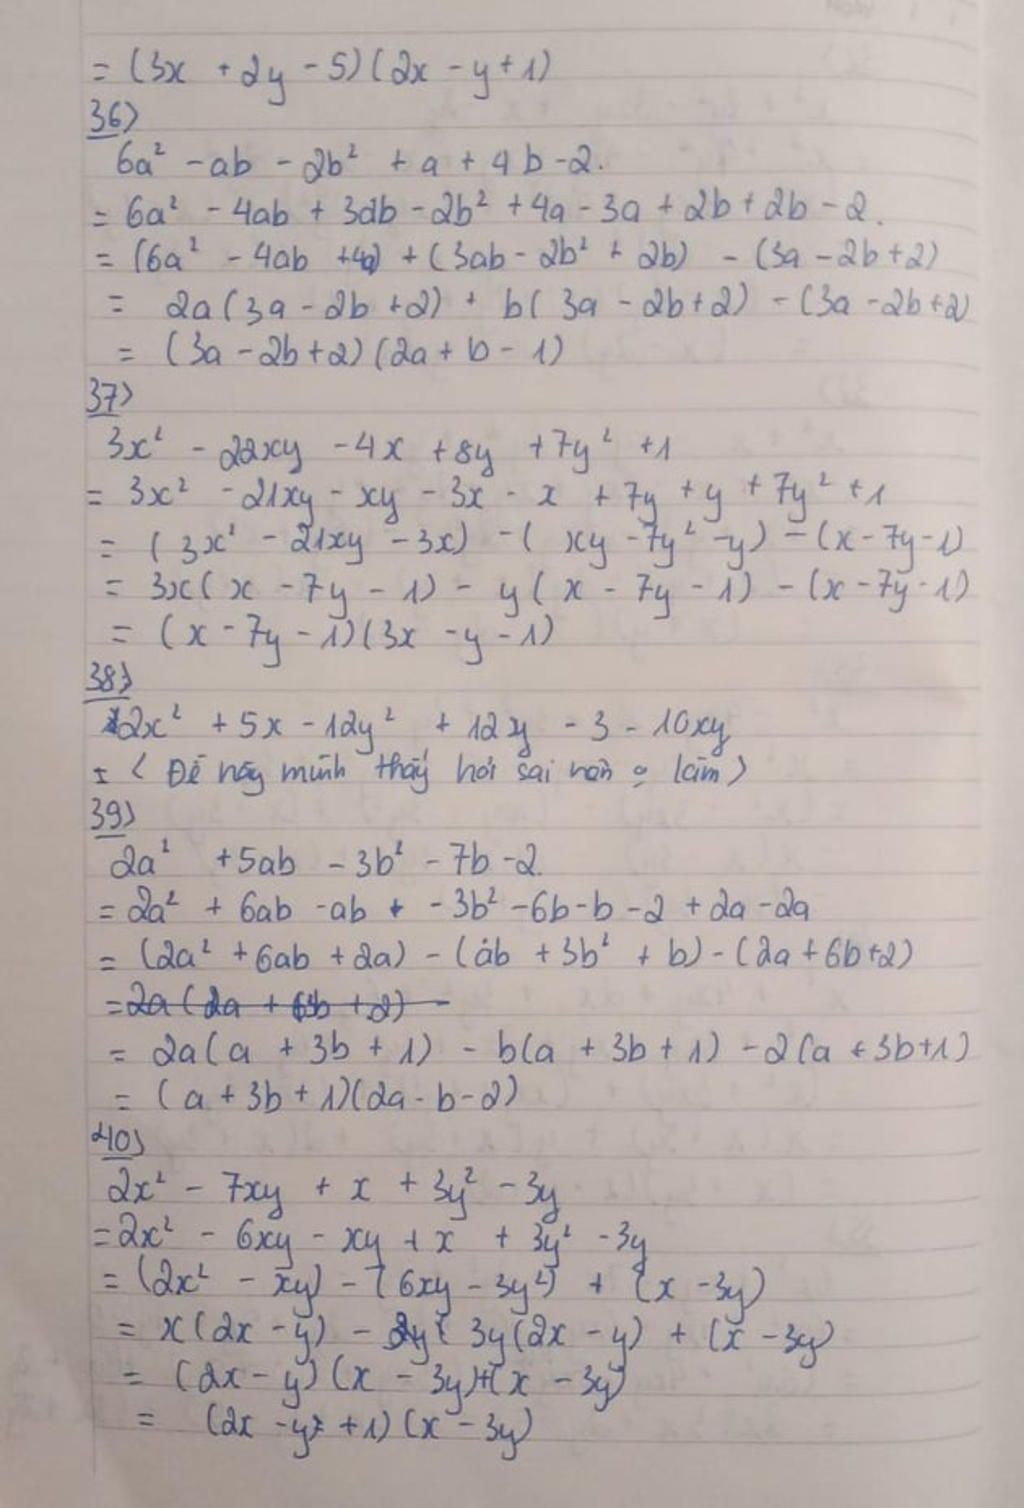 = (3x + 2y - 5)(2x - y + 1)
36)
6a² - ab - 2b² + a + 4b - 2.
= 6a² - 4ab + 3ab - 2b² + 4a - 3a + 2b + 2b - 2.
= (6a² - 4ab + 4a) + (3ab - 2b² + 2b) - (3a - 2b + 2)
= 2a(3a - 2b + 2) + b(3a - 2b + 2) - (3a - 2b + 2)
= (3a - 2b + 2)(2a + b - 1)
37)
3x² - 22xy - 4x + 8y + 7y² + 1
= 3x² - 21xy - xy - 3x - x + 7y + y + 7y² + 1
= (3x² - 21xy - 3x) - (xy - 7y² - y) - (x - 7y - 1)
= 3x(x - 7y - 1) - y(x - 7y - 1) - (x - 7y - 1)
= (x - 7y - 1)(3x - y - 1)
38)
12x² + 5x - 12y² + 12y - 3 - 10xy
(Đề này mình thấy hơi sai nên làm)
39)
2a² + 5ab - 3b² - 7b - 2
= 2a² + 6ab - ab + - 3b² - 6b - b - 2 + 2a - 2a
= (2a² + 6ab + 2a) - (ab + 3b² + b) - (2a + 6b + 2)
= 2a(2a + 6b + 2)
= 2a(a + 3b + 1) - b(a + 3b + 1) - 2(a + 3b + 1)
= (a + 3b + 1)(2a - b - 2)
40)
2x² - 7xy + x + 3y² - 3y
= 2x² - 6xy - xy + x + 3y² - 3y
= (2x² - xy) - (6xy - 3y²) + (x - 3y)
= x(2x - y) - 3y(2x - y) + (x - 3y)
= (2x - y)(x - 3y) + (x - 3y)
= (2x - y + 1)(x - 3y)